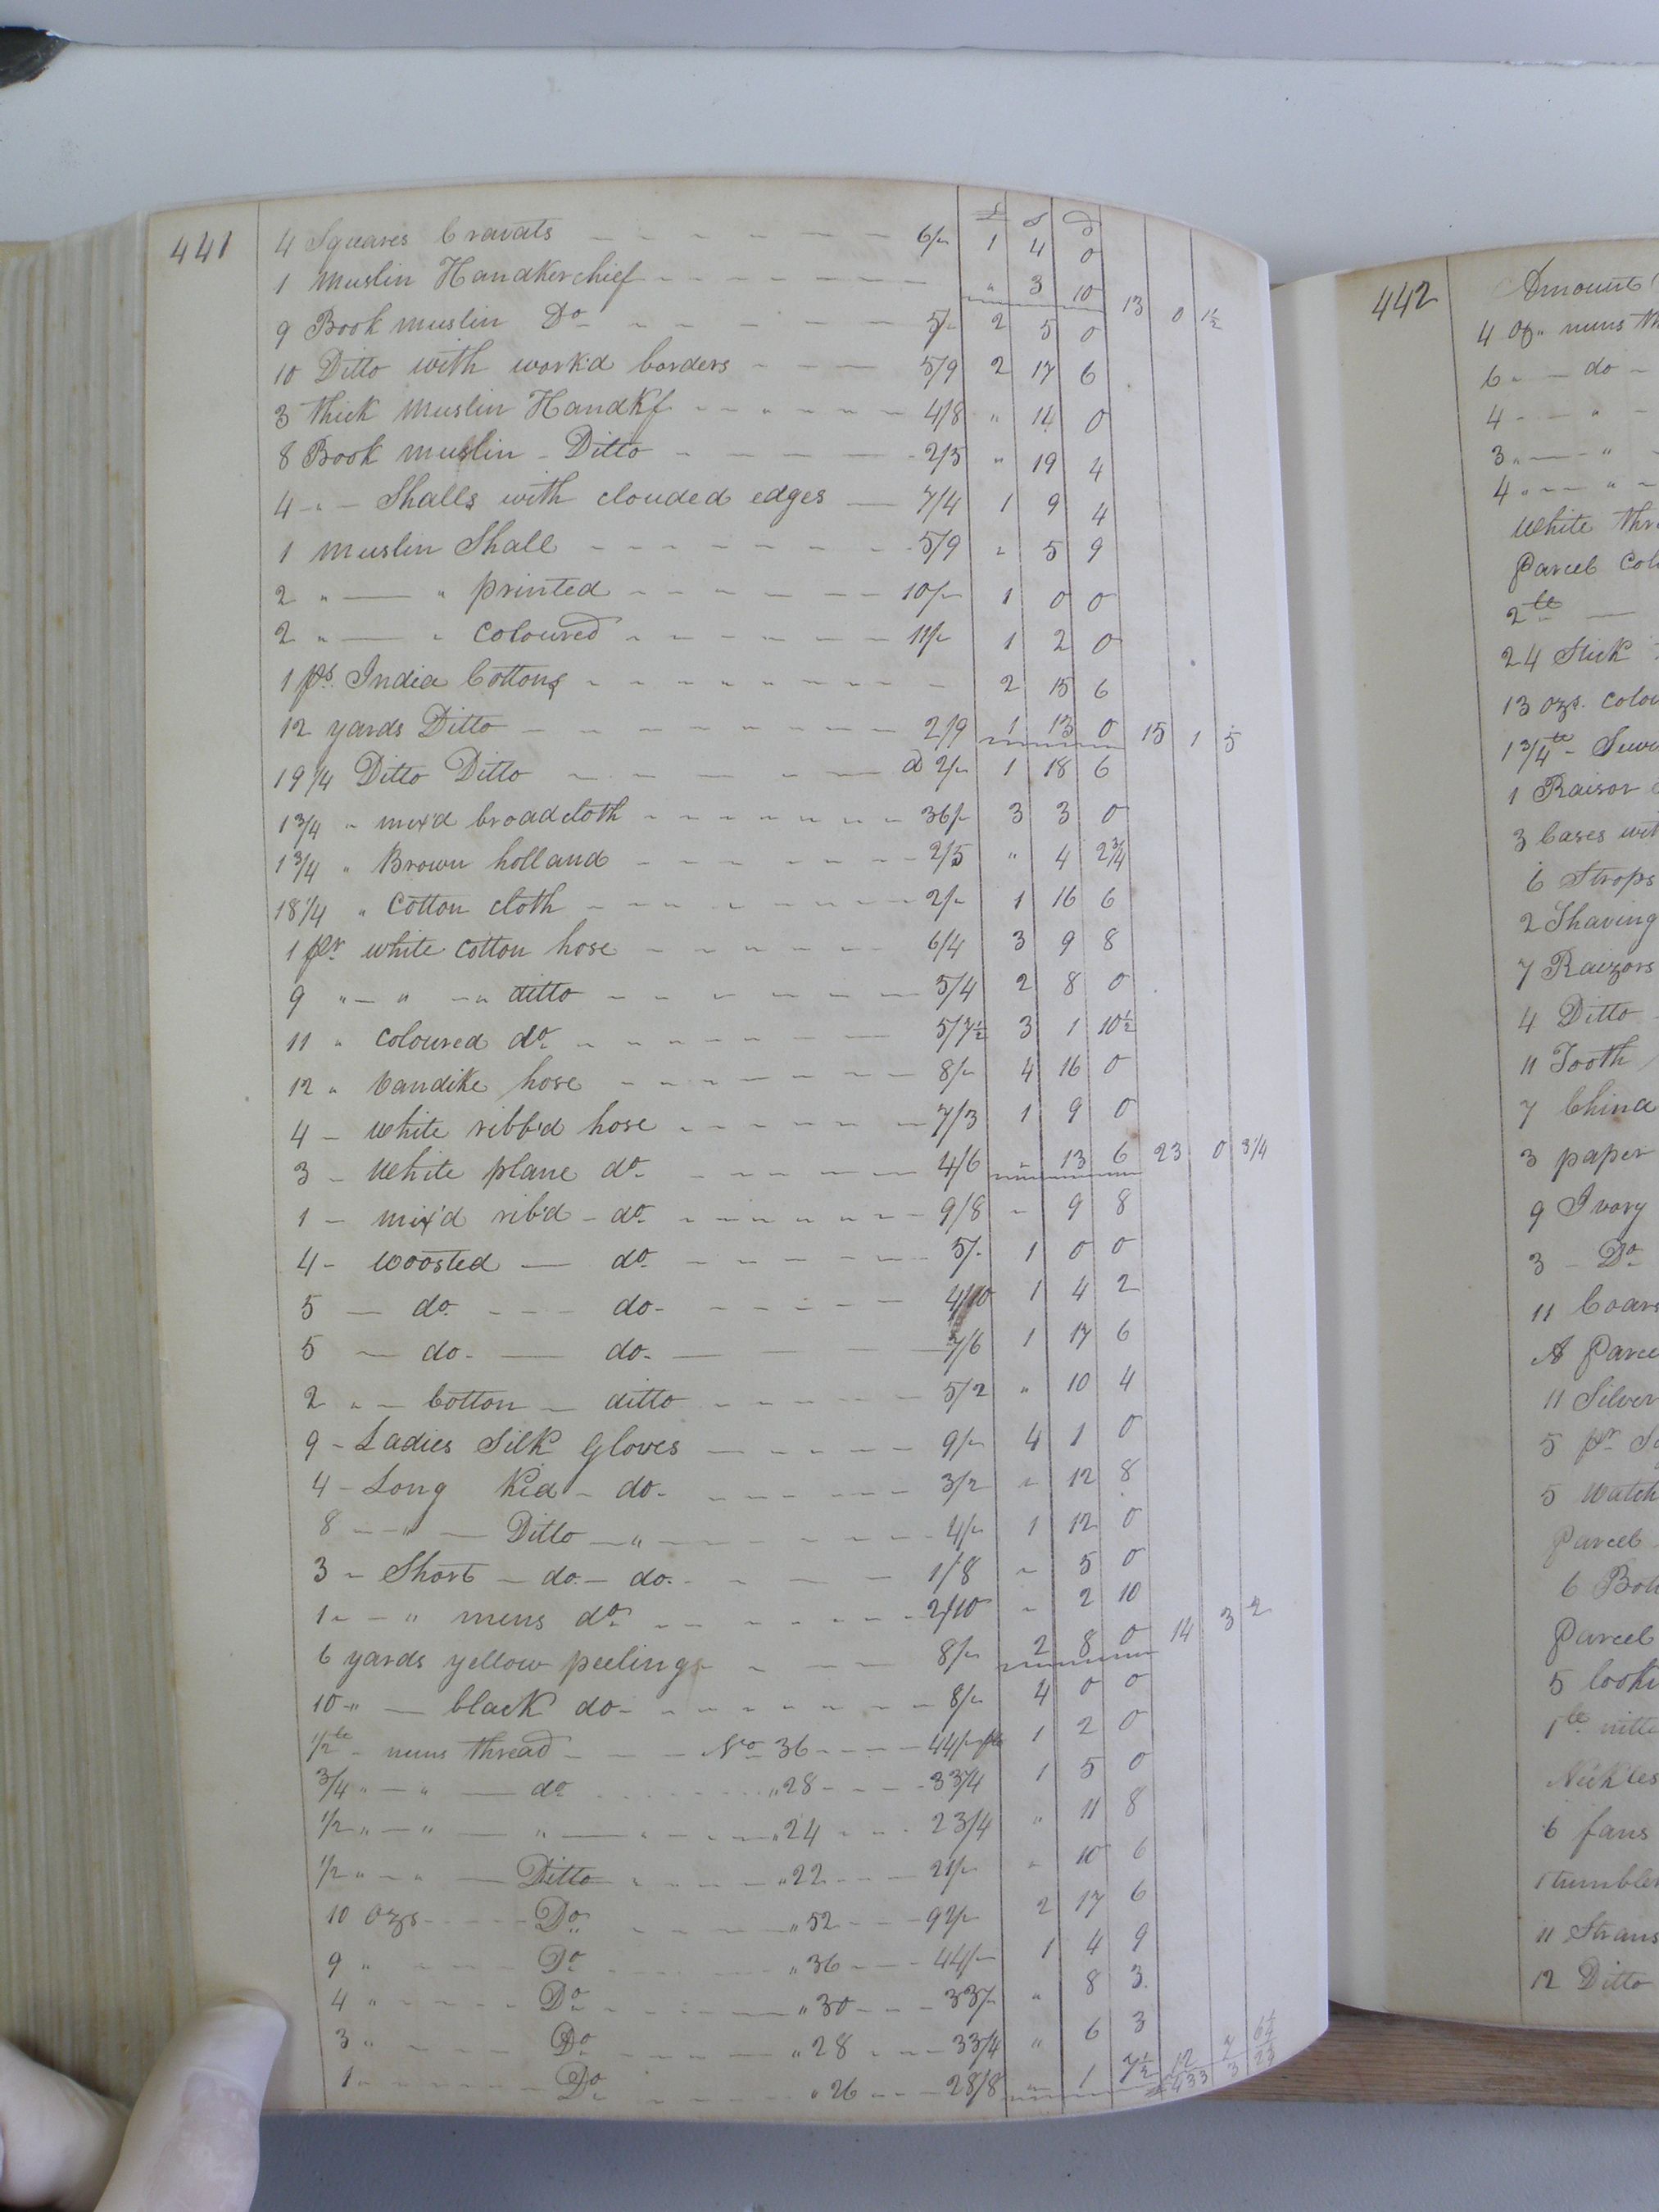 441
£ s d
4 Squares Cravats 6/- 1 4 0
1 muslin Handkerchief " 3 10 13 0 1½
9 Book muslin Do 5/- 2 5 0
10 Ditto with work'd borders 5/9 2 17 6
3 thick muslin Handkf 4/8 " 14 0
8 Book muslin - Ditto 2/5 " 19 4
4 " - Shalls with clouded edges 7/4 1 9 4
1 muslin Shall 5/9 " 5 9
2 " — " printed 10/- 1 0 0
2 " — " Coloured 11/- 1 2 0
1 ps India Cottons 2 15 6
12 yards Ditto 2/9 1 13 0 15 1 5
19 1/4 Ditto Ditto @ 2/- 1 18 6
1 3/4 " mix'd broadcloth 36/- 3 3 0
1 3/4 " Brown holland 2/5 " 4 2¾
18 1/4 " Cotton cloth 2/- 1 16 6
1 pr white cotton hose 6/4 3 9 8
9 " - " - " ditto 5/4 2 8 0
11 " coloured do 5/7½ 3 1 10½
12 " Vandike hose 8/- 4 16 0
4 - white ribb'd hose 7/3 1 9 0
3 - White plane do 4/6 " 13 6 23 0 3 1/4
1 - mix'd rib'd - do 9/8 " 9 8
4 - woosted — do 5/- 1 0 0
5 — do - - - do 4/10 1 4 2
5 — do — do 7/6 1 17 6
2 " - Cotton - ditto 5/2 " 10 4
9 - Ladies Silk Gloves 9/- 4 1 0
4 - Long Kid - do 3/2 " 12 8
8 - " - Ditto - " 4/- 1 12 0
3 - Short - do - do 1/8 " 5 0
1 - - " mens do 2/10 " 2 10
6 yards yellow peelings 8/- 2 8 0 14 3 2
10 " — black do 8/- 4 0 0
1/2 lb - nuns thread No 36 44/- 1 2 0
3/4 " - " — do " 28 33/4 1 5 0
1/2 " - " — " — " 24 23/4 " 11 8
1/2 " - " — Ditto " 22 21/- " 10 6
10 ozs Do " 52 92/- 2 17 6
9 " Do " 36 44/- 1 4 9
4 " Do " 30 33/- " 8 3
3 " Do " 28 33/4 " 6 3
1 Do " 26 28/8 " 1 7½ 12 7 6¼
£433 3 2¼
442
Amount
4 oz " nuns th
6 " — do -
4 - — " -
3 " — " -
4 " — " -
White thr
Parcel Col
2 lb —
24 Stick
13 ozs. Colou
1 3/4 lb - Sew
1 Raisor
3 Cases wit
6 Strops
2 Shaving
7 Raizors
4 Ditto
11 Tooth
7 China
3 paper
9 Ivory
3 - Do
11 Coars
A Parce
11 Silver
5 pr
5 Watch
Parcel
6 Bot
Parcel
5 look
1 lb nitt
Nickles
6 fans
1 tumbler
11 Straus
12 Ditto